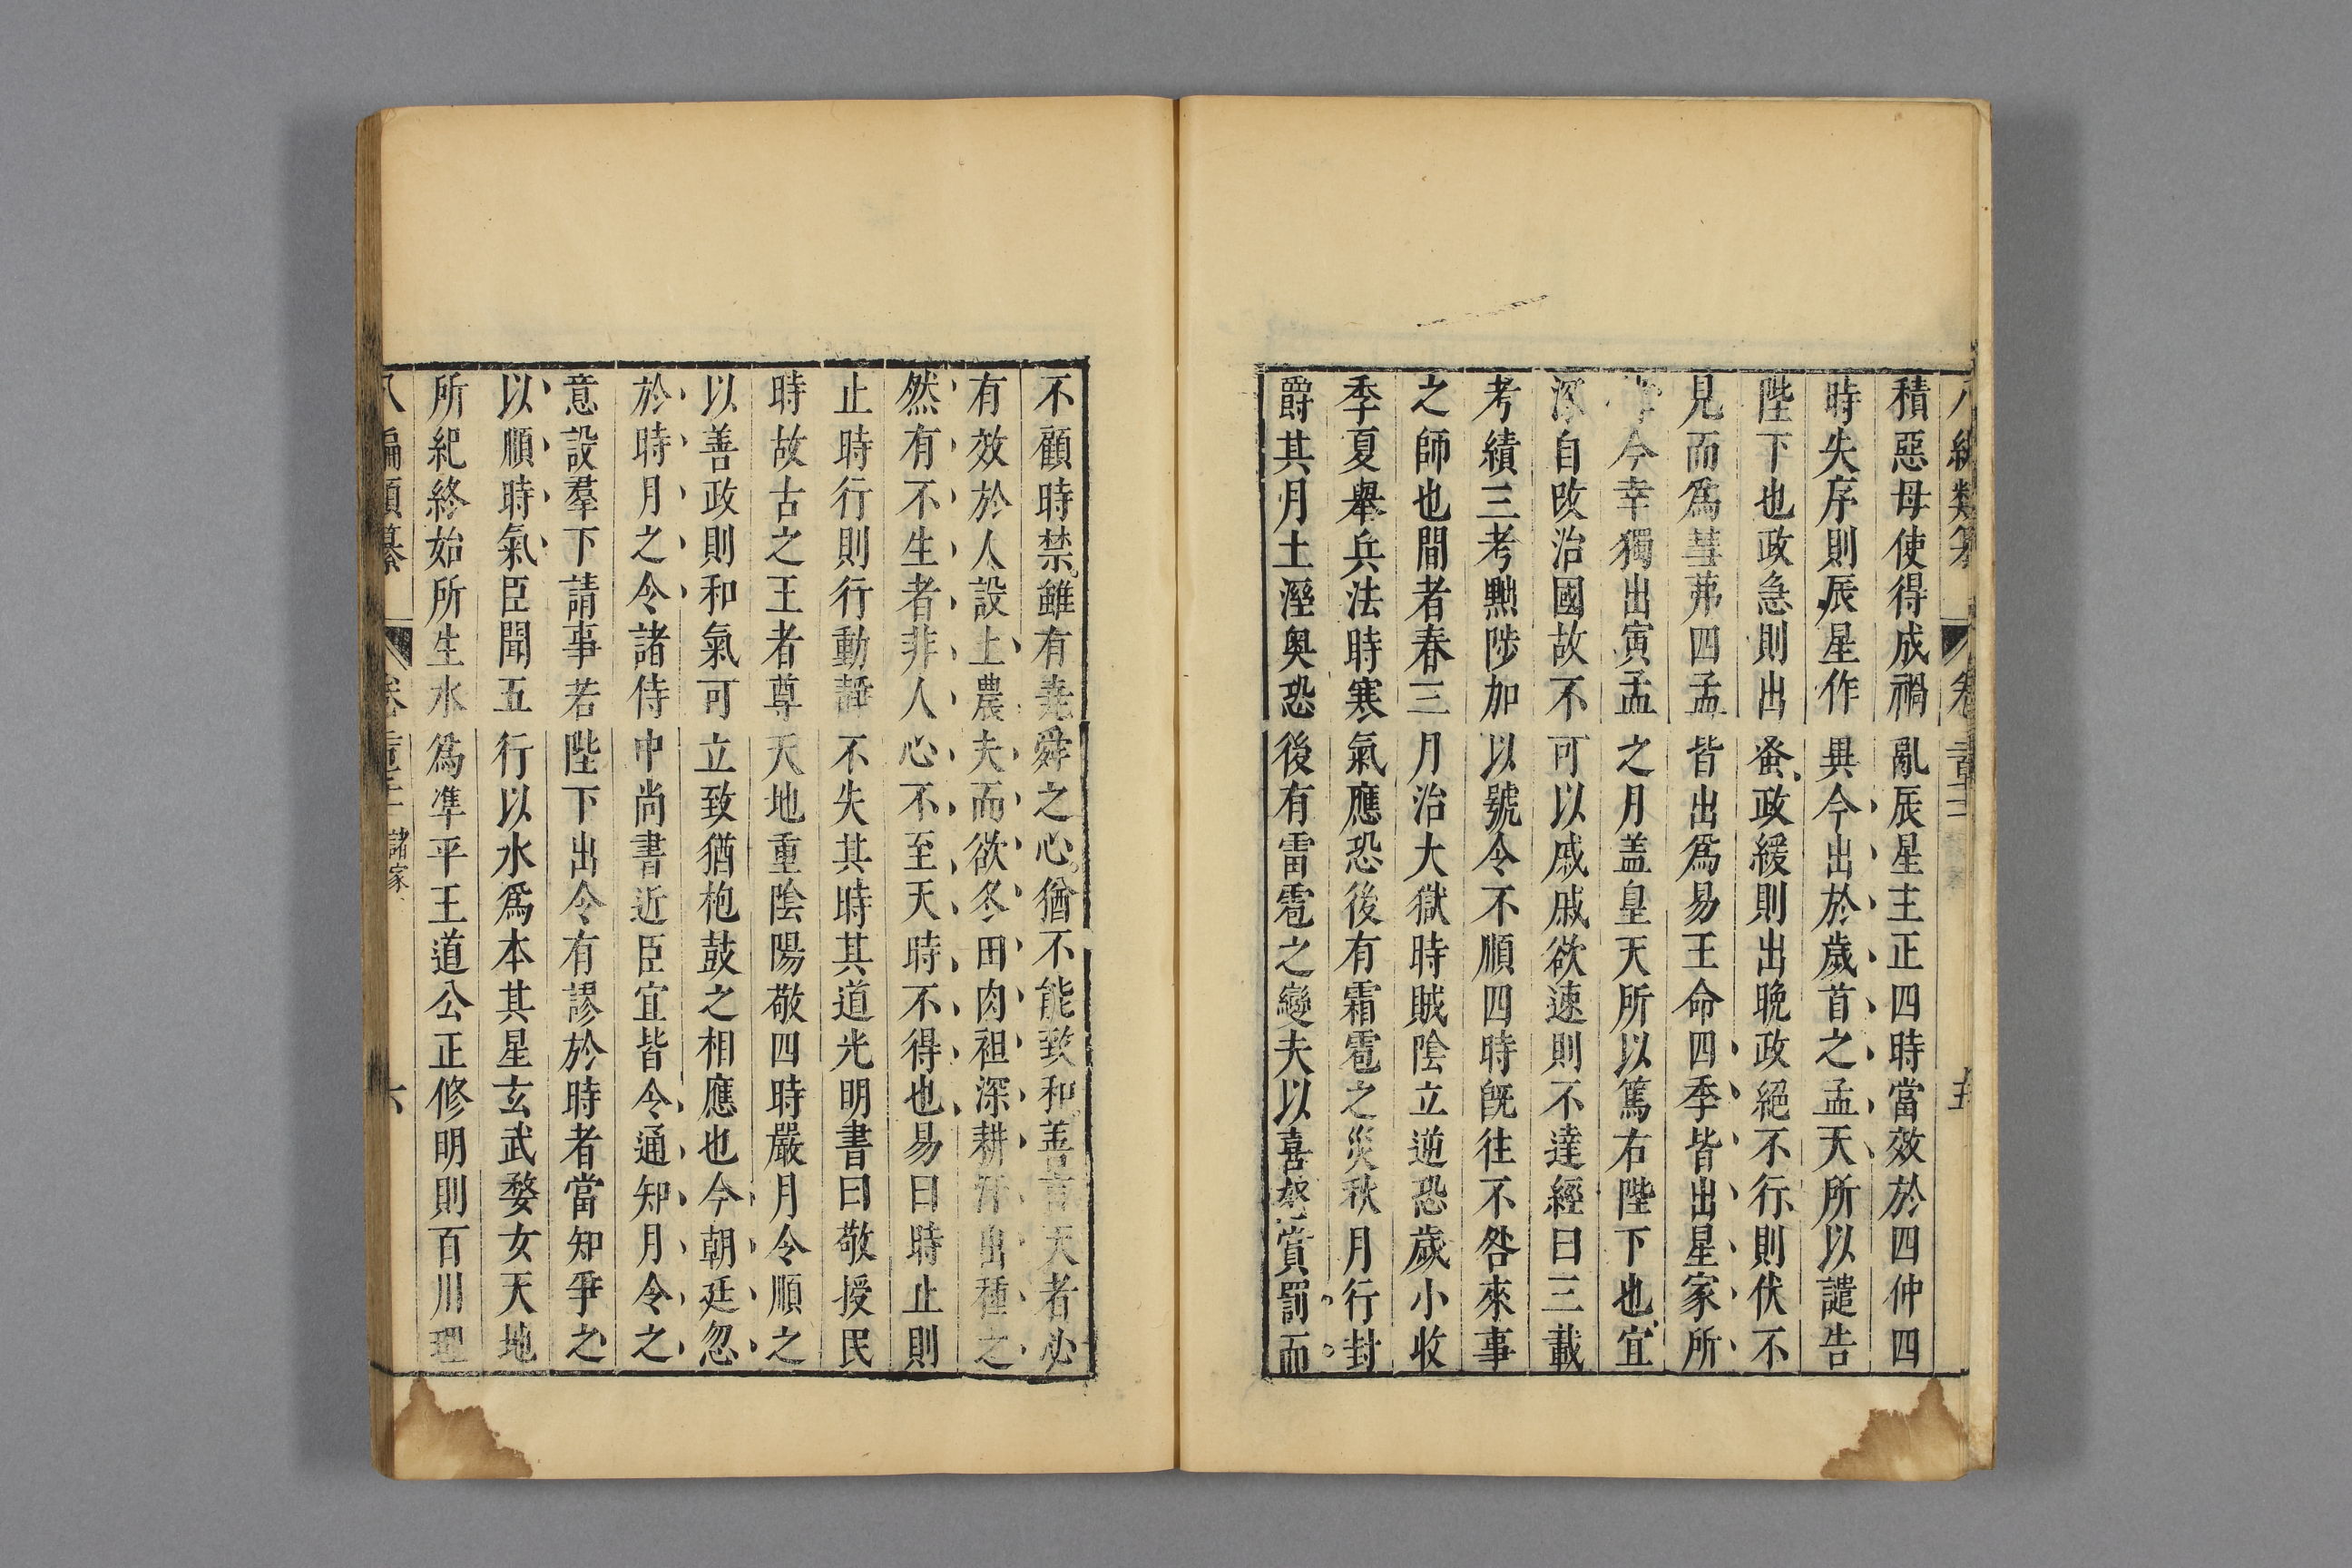 積惡毋使得成禍亂辰星主正四時當效於四仲四
時失序則辰星作異今出於歲首之孟天所以譴告
陛下也政急則出蚤政緩則出晚政絕不行則伏不
見而爲彗茀四孟皆出爲易王命四季皆出星家所
今幸獨出寅孟之月蓋皇天所以篤右陛下也宜
深自改治國故不可以戚戚欲速則不達經曰三載
考績三考黜陟加以號令不順四時旣往不咎來事
之師也間者春三月治大獄時賊陰立逆恐歲小收
季夏舉兵法時寒氣應恐後有霜雹之災秋月行封
爵其月土溼奧恐後有雷雹之變夫以喜怒賞罰而
不顧時禁雖有堯舜之心猶不能致和善言天者必
有效於人設上農夫而欲冬田肉袒深耕汗出種之
然有不生者非人心不至天時不得也易曰時止則
止時行則行動靜不失其時其道光明書曰敬授民
時故古之王者尊天地重陰陽敬四時嚴月令順之
以善政則和氣可立致猶枹鼓之相應也今朝廷忽
於時月之令諸侍中尚書近臣宜皆令通知月令之
意設羣下請事若陛下出令有謬於時者當知爭之
以順時氣臣聞五行以水爲本其星玄武婺女天地
所紀終始所生水爲準平王道公正修明則百川理
八編類纂 卷 諸家 六